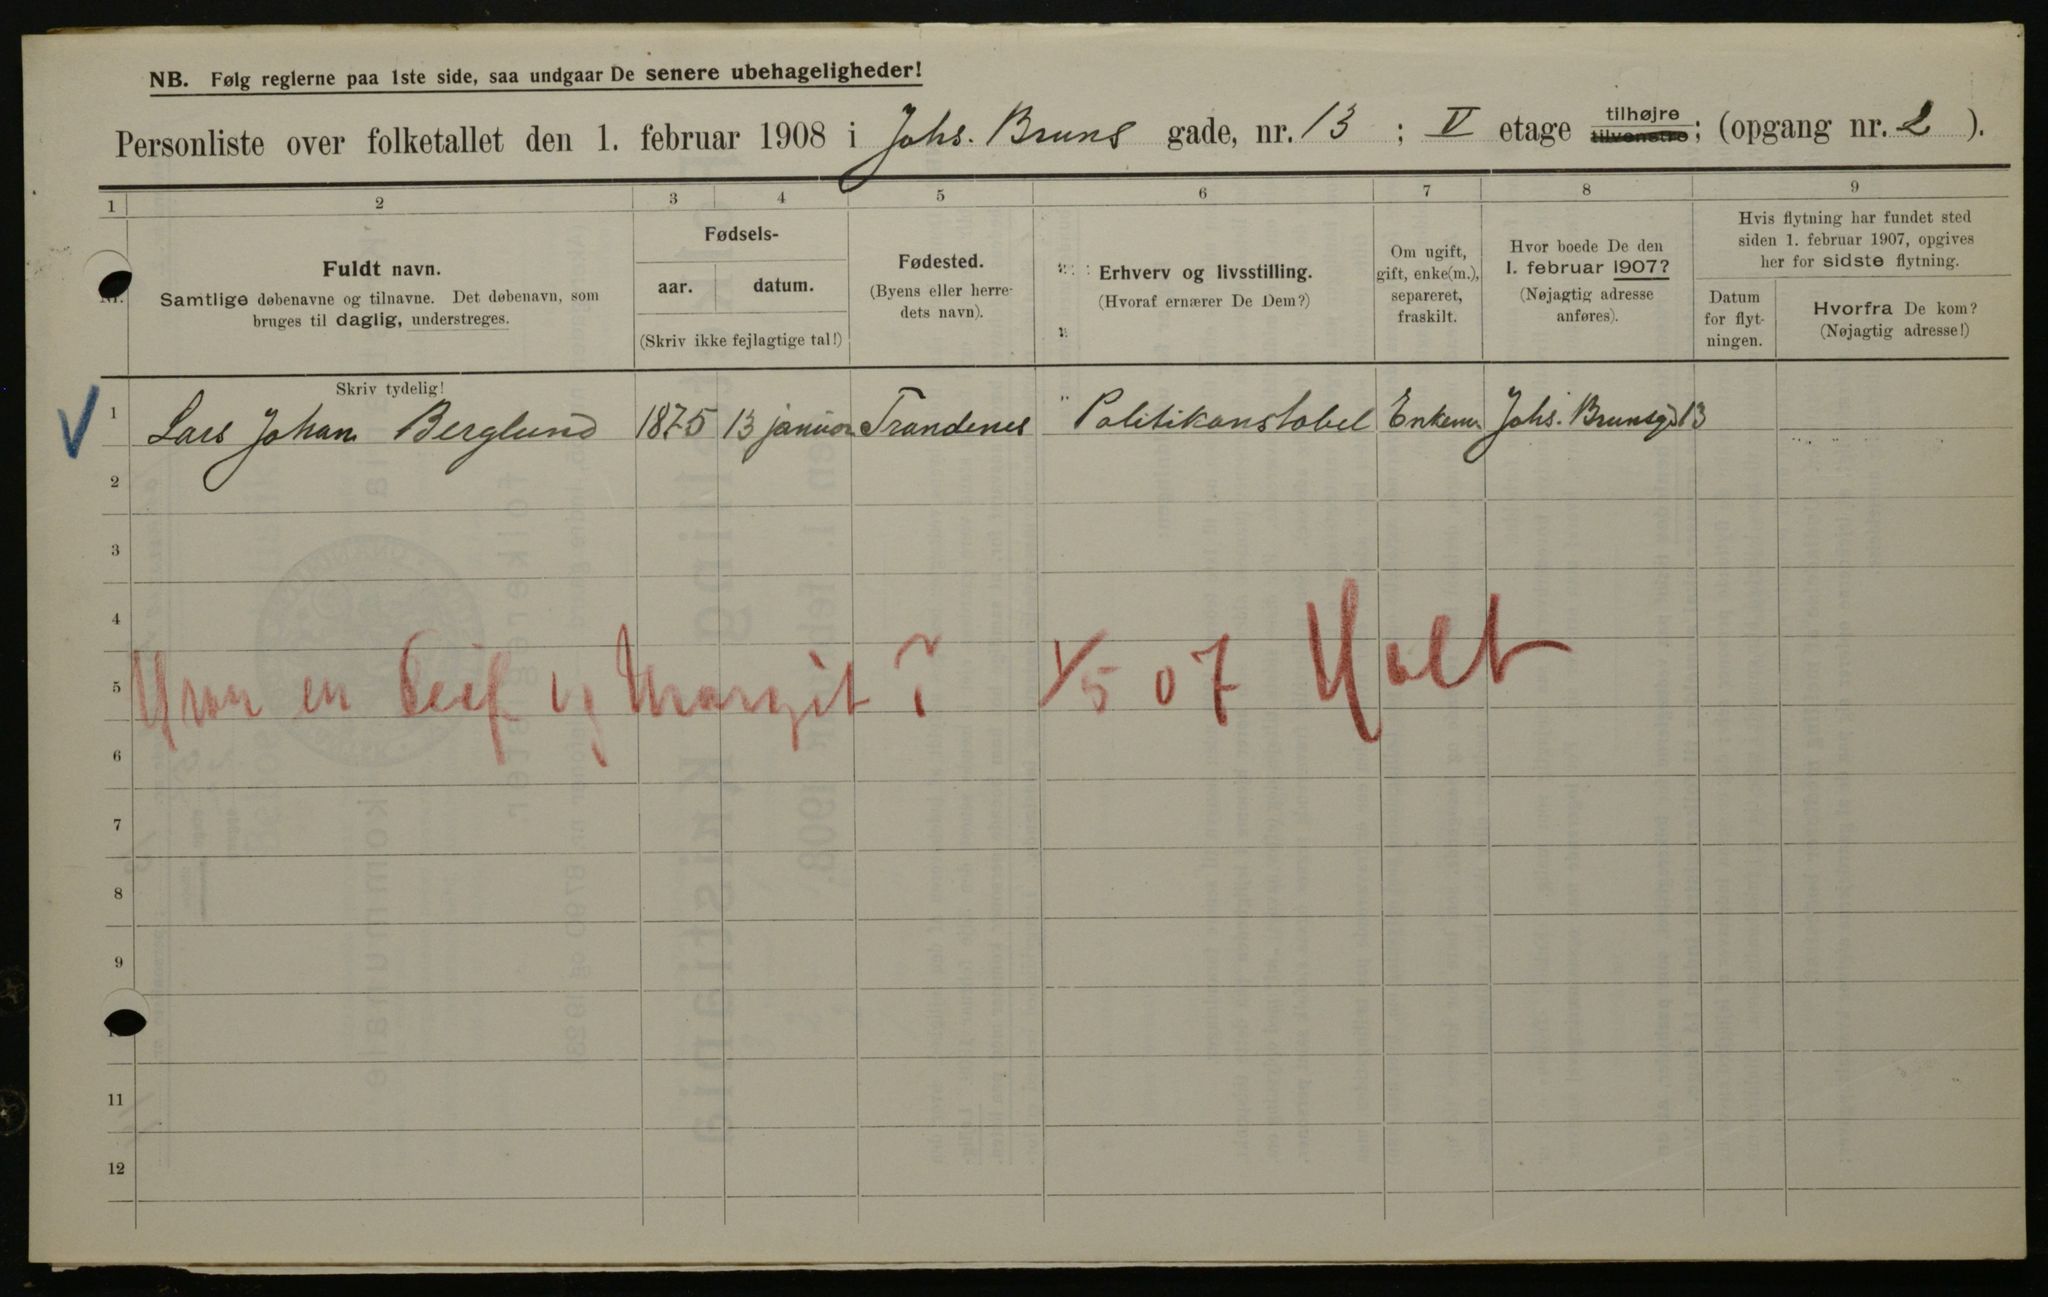 NB. Følg reglerne paa 1ste side, saa undgaar De senere ubehageligheder!
Personliste over folketallet den 1. februar 1908 i Johs. Bruns gade, nr. 13 ; V etage tilhøjre tilvenstre; (opgang nr. 2 ).
1 2 3 4 5 6 7 8 9
Nr.
Fuldt navn.
Samtlige døbenavne og tilnavne. Det døbenavn, som
bruges til daglig, understreges.
Fødsels-
aar. datum.
(Skriv ikke fejlagtige tal!)
Fødested.
(Byens eller herre-
dets navn).
Erhverv og livsstilling.
(Hvoraf ernærer De Dem?)
Om ugift,
gift, enke(m.),
separeret,
fraskilt.
Hvor boede De den
1. februar 1907?
(Nøjagtig adresse
anføres).
Hvis flytning har fundet sted
siden 1. februar 1907, opgives
her for sidste flytning.
Datum
for flyt-
ningen.
Hvorfra De kom?
(Nøjagtig adresse!)
Skriv tydelig!
1 Lars Johan Berglund 1875 13 januar Trondenes Politikonstabel Enkem. Johs. Brunsgd 13
2
3
4
5 Hvor er Leif og Margit? 1/5 07 Holt
6
7
8
9
11
12